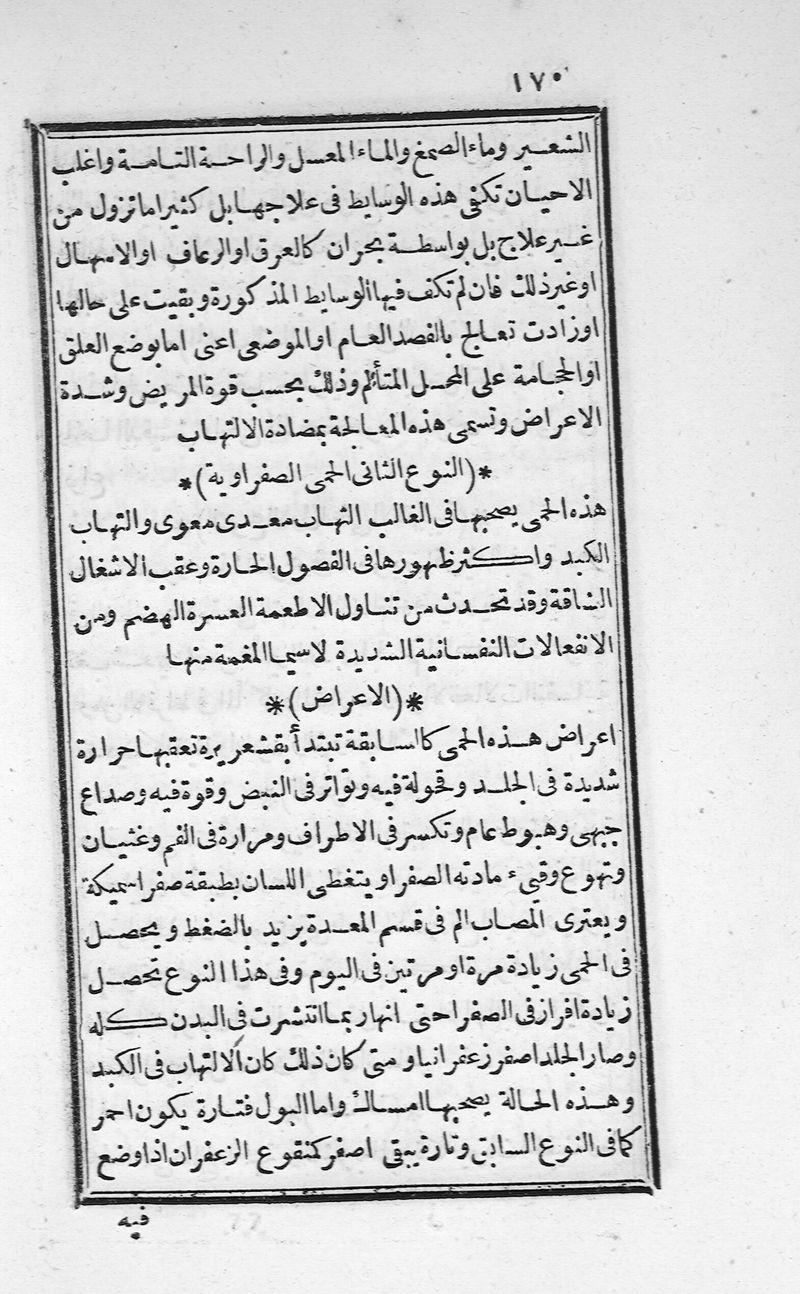 ١٧٠
الشعير وماء الصمغ والماء المعسل والراحة التامة واغلب
الاحيان تكفى هذه الوسايط فى علاجها بل كثيرا ما تزول من
غير علاج بل بواسطة بحران كالعرق او الرعاف او الاسهال
او غير ذلك فان لم تكف فيها الوسايط المذكورة وبقيت على حالها
او زادت تعالج بالفصد العام او الموضعى اعنى اما بوضع العلق
او الحجامة على المحل المتألم وذلك بحسب قوة المريض وشدة
الاعراض وتسمى هذه المعالجة بمضادة الالتهاب
*(النوع الثانى الحمى الصفراوية)*
هذه الحمى يصحبها فى الغالب التهاب معدى معوى والتهاب
الكبد واكثر ظهورها فى الفصول الحارة وعقب الاشغال
الشاقة وقد تحدث من تناول الاطعمة العسرة الهضم ومن
الانفعالات النفسانية الشديدة لاسيما المغمة منها
*(الاعراض)*
اعراض هذه الحمى كالسابقة تبتدأ بقشعريرة تعقبها حرارة
شديدة فى الجلد وقحولة فيه وتواتر فى النبض وقوة فيه وصداع
جبهى وهبوط عام وتكسر فى الاطراف ومرارة فى الفم وغثيان
وتهوع وقيء مادته الصفرا ويتغطى اللسان بطبقة صفرا سميكة
ويعترى المصاب الم فى قسم المعدة يزيد بالضغط ويحصل
فى الحمى زيادة مرة او مرتين فى اليوم وفى هذا النوع تحصل
زيادة افراز فى الصفرا حتى انها ربما انتشرت فى البدن كله
وصار الجلد اصفر زعفرانيا ومتى كان ذلك كان الالتهاب فى الكبد
وهذه الحالة يصحبها امساك واما البول فتارة يكون احمر
كما فى النوع السابق وتارة يبقى اصفر كمنقوع الزعفران اذا وضع
فيه